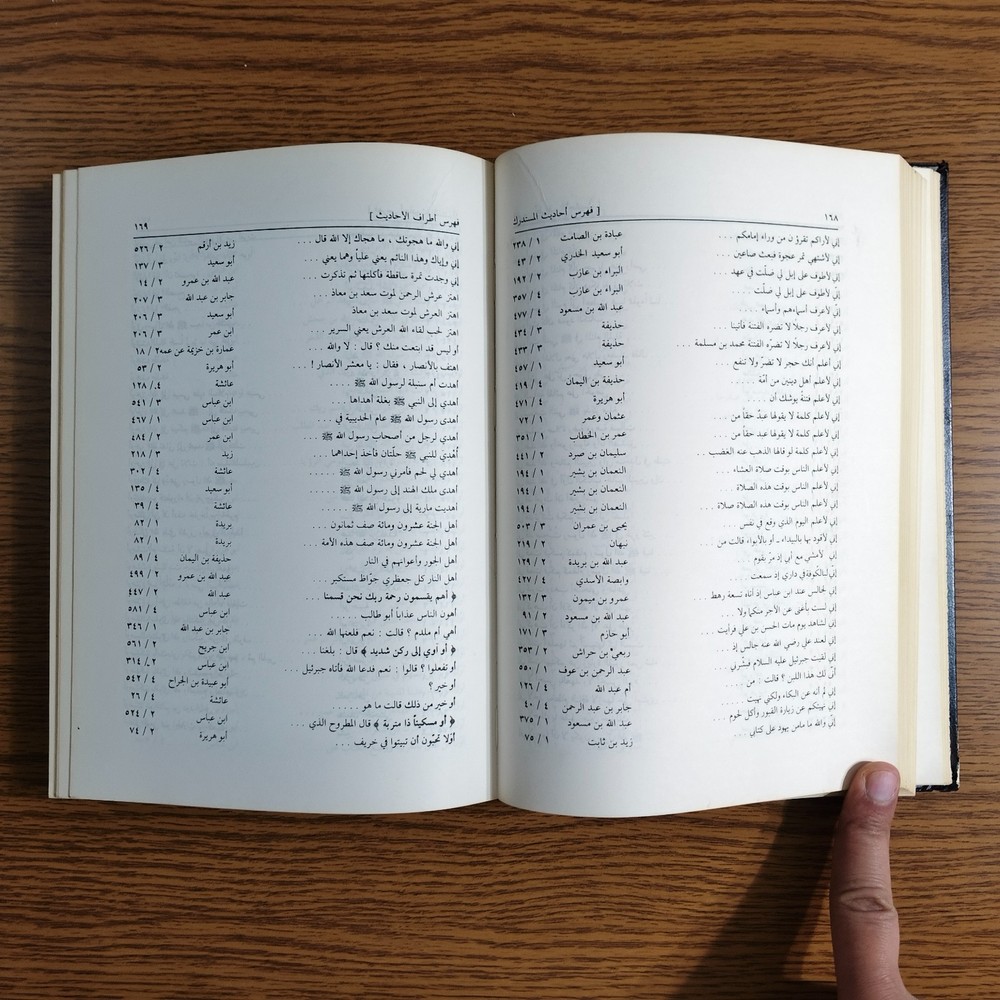 ١٦٨ [ فهرس أحاديث المستدرك
إني لأراكم تقرؤن من وراء إمامكم . . . عبادة بن الصامت ١ / ٢٣٨
إني لأشتهي تمر عجوة فبعث صاعين . . . أبو سعيد الخدري ٢ / ٤٣
إني لأطوف على إبل لي ضلّت في عهد . . . البراء بن عازب ٢ / ١٩٢
إني لأطوف على إبل لي ضلّت . . . البراء بن عازب ٤ / ٣٥٧
إني لأعرف أسماءهم وأسماء . . . عبد الله بن مسعود ٤ / ٤٧٧
إني لأعرف رجلًا لا تضره الفتنة فأتينا . . . حذيفة ٣ / ٤٣٤
إني لأعرف رجلًا لا تضرّه الفتنة محمد بن مسلمة . . . حذيفة ٣ / ٤٣٣
إني لأعلم أنك حجر لا تضرّ ولا تنفع . . . أبو سعيد ١ / ٤٥٧
إني لأعلم أهل دينين من أمّة . . . . . حذيفة بن اليمان ٤ / ٤١٩
إني لأعلم فتنةً يوشك أن . . . أبو هريرة ٤ / ٤٧١
إني لأعلم كلمة لا يقولها عبدٌ حقاً من . . . عثمان وعمر ١ / ٧٢
إني لأعلم كلمة لا يقولها عبد حقاً من . . . عمر بن الخطاب ١ / ٣٥١
إني لأعلم كلمة لو قالها الذهب عنه الغضب . . . سليمان بن صرد ٢ / ٤٤١
إني لأعلم الناس بوقت صلاة العشاء . . . النعمان بن بشير ١ / ١٩٤
إني لأعلم الناس بوقت هذه الصلاة . . . النعمان بن بشير ١ / ١٩٤
إني لأعلم الناس بوقت هذه الصلاة صلاة . . . النعمان بن بشير ١ / ١٩٤
إني لأعلم اليوم الذي وقع في نفس . . . يحيى بن عمران ٣ / ٥٠٣
إني لأقود بها بالبيداء ـ أو بالأبواء قالت من . . . نبهان ٢ / ٢١٩
إني لأمشي مع أبي إذ مرّ بقوم . . . عبد الله بن بريدة ٢ / ١٢٩
إني لبالكوفة في داري إذ سمعت . . . وابصة الأسدي ٤ / ٤٢٧
إني لجالس عند ابن عباس إذ أتاه تسعة رهط . . . عمرو بن ميمون ٣ / ١٣٢
إني لست بأغنى عن الأجر منكما ولا . . . عبد الله بن مسعود ٢ / ٩١
إني لشاهد يوم مات الحسن بن علي فرأيت . . . أبو حازم ٣ / ١٧١
إني لعند علي رضي الله عنه جالس إذ . . . ربعي بن حراش ٢ / ٣٥٣
إني لقيت جبرئيل عليه السلام فبشّرني . . . عبد الرحمن بن عوف ١ / ٥٥٠
أنّى لك هذا اللبن ؟ قالت : من . . . أم عبد الله ٤ / ١٢٦
إني لم أنه عن البكاء ولكني نهيت . . . جابر بن عبد الرحمن ٤ / ٤٠
إني نهيتكم عن زيارة القبور وأكل لحوم . . . عبد الله بن مسعود ١ / ٣٧٥
إني والله ما مامن يهود على كتابي . . . زيد بن ثابت ١ / ٧٥
فهرس أطراف الأحاديث ] ١٦٩
إني والله ما هجوتك ، ما هجاك إلا الله قال . . . زيد بن أرقم ٢ / ٥٢٦
إني وإياك وهذا النائم يعني علياً وهما يعني . . . أبو سعيد ٣ / ١٣٧
إني وجدت تمرة ساقطة فأكلتها ثم تذكرت . . . عبد الله بن عمرو ٢ / ١٤
اهتز عرش الرحمن لموت سعد بن معاذ . . . جابر بن عبد الله ٣ / ٢٠٧
اهتز العرش لموت سعد بن معاذ أبو سعيد ٣ / ٢٠٦
اهتز لحب لقاء الله العرش يعني السرير . . . ابن عمر ٣ / ٢٠٦
أو ليس قد ابتعت منك ؟ قال : لا والله . . . عمارة بن خزيمة عن عمه ٢ / ١٨
اهتف بالأنصار ، فقال : يا معشر الأنصار ! . . . أبو هريرة ٢ / ٥٣
أهدت أم سنبلة لرسول الله ﷺ . . . . عائشة ٤ / ١٢٨
أهدي إلى النبي ﷺ بغلة أهداها . . . ابن عباس ٣ / ٥٤١
أهدى رسول الله ﷺ عام الحديبية في . . . ابن عباس ١ / ٤٦٧
أهدي لرجل من أصحاب رسول الله ﷺ . . . ابن عمر ٢ / ٤٨٤
أُهْدِيَ للنبي ﷺ حلّتان فأخذ إحداهما . . . زيد ٣ / ٢١٨
أهدي لي لحم فأمرني رسول الله ﷺ . . . عائشة ٤ / ٣٠٢
أهدى ملك الهند إلى رسول الله ﷺ . . . . أبو سعيد ٤ / ١٣٥
أهديت مارية إلى رسول الله ﷺ . . . . . عائشة ٤ / ٣٩
أهل الجنة عشرون ومائة صف ثمانون . . . بريدة ١ / ٨٢
أهل الجنة عشرون ومائة صف هذه الأمة . . . بريدة ١ / ٨٢
أهل الجور وأعوانهم في النار حذيفة بن اليمان ٤ / ٨٩
أهل النار كل جعظري جوّاظ مستكبر . . . عبد الله بن عمرو ٢ / ٤٩٩
﴿ أهم يقسمون رحمة ربك نحن قسمنا . . . عبد الله ٢ / ٤٤٧
أهون الناس عذاباً أبو طالب . . . . . ابن عباس ٤ / ٥٨١
أهي أم ملدم ؟ قالت : نعم فلعنها الله . . . جابر بن عبد الله ١ / ٣٤٦
﴿ أو آوي إلى ركن شديد ﴾ قال : بلغنا . . . ابن جريج ٢ / ٥٦١
أو تفعلوا ؟ قالوا : نعم فدعا الله فأتاه جبرئيل . . . ابن عباس ٢ / ٣١٤
أو خير ؟ أبو عبيدة بن الجراح ٤ / ٥٤٢
أو خير من ذلك قالت ما هو . . . . . عائشة ٤ / ٢٦
﴿ أو مسكيناً ذا متربة ﴾ قال المطروح الذي . . . ابن عباس ٢ / ٥٢٤
أوَلا تحبّون أن تبيتوا في خريف . . . أبو هريرة ٢ / ٧٤